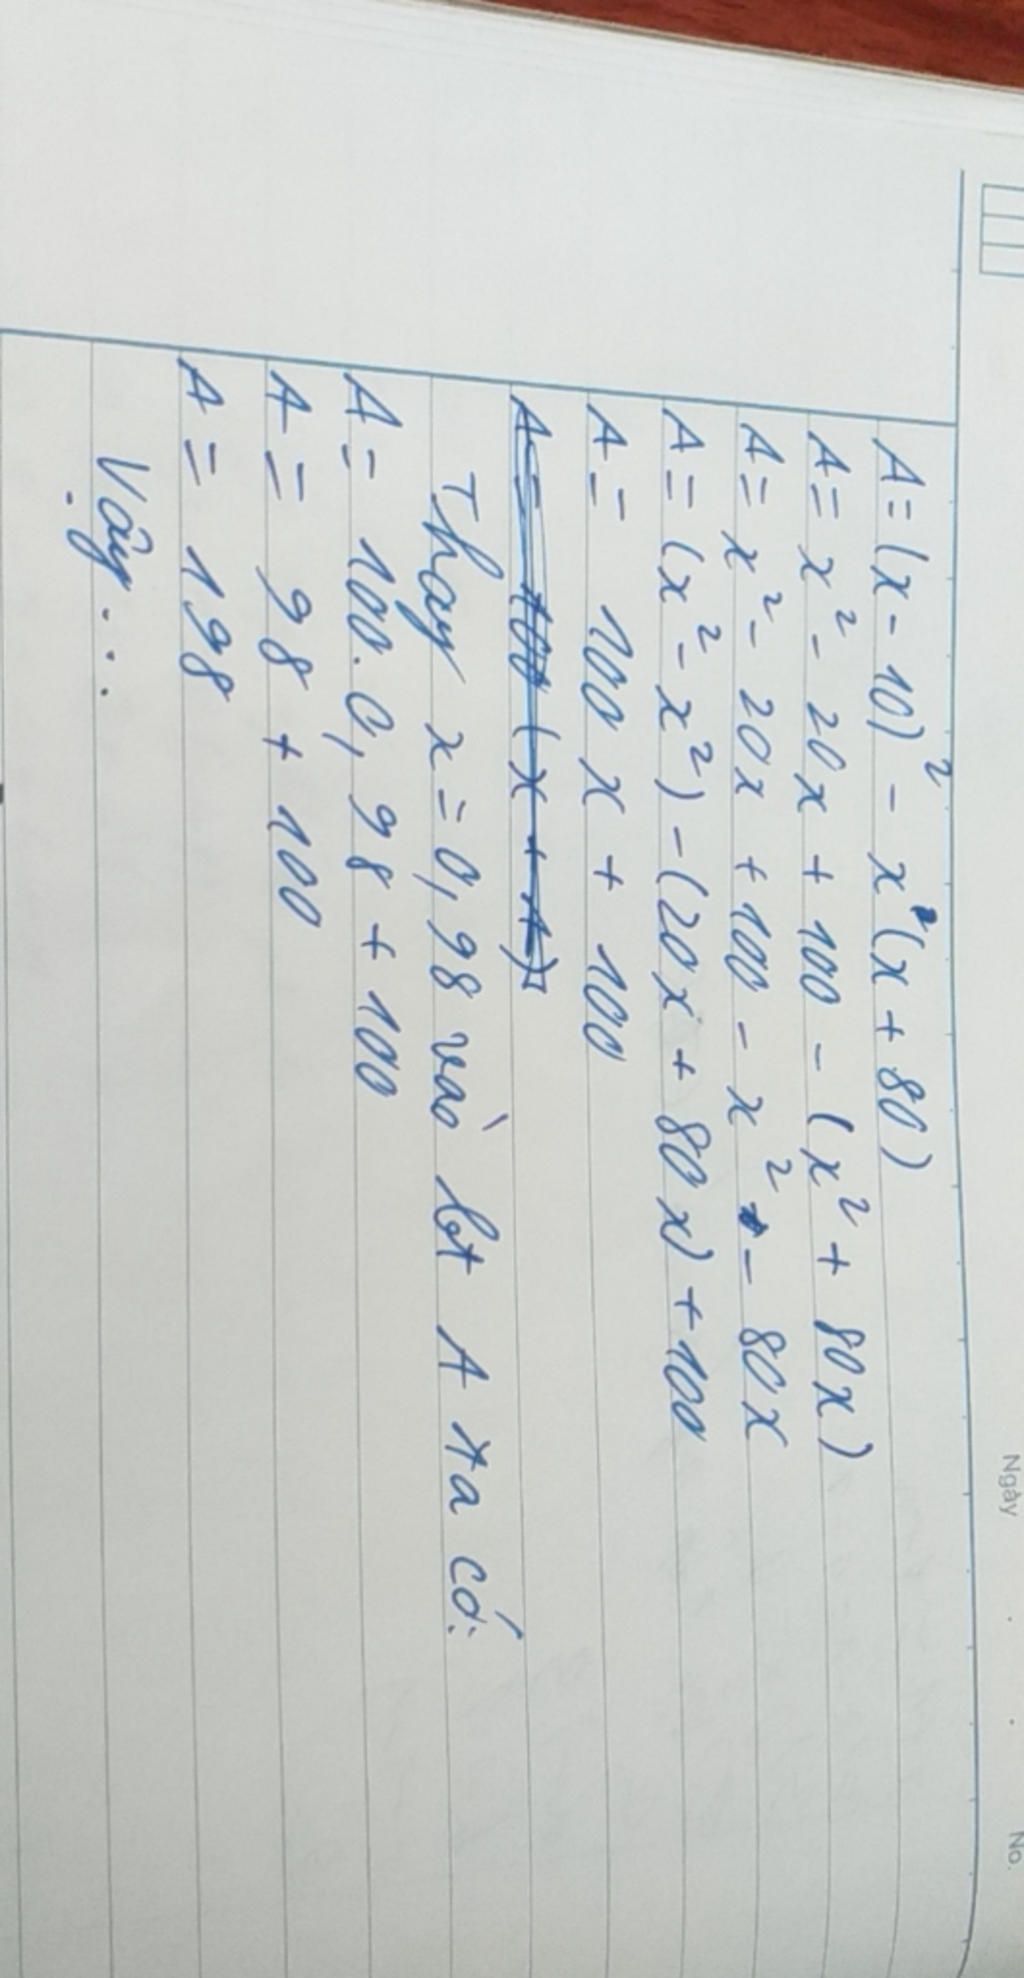 Ngày . . No.
A = (x - 10)² - x(x + 80)
A = x² - 20x + 100 - (x² + 80x)
A = x² - 20x + 100 - x² - 80x
A = (x² - x²) - (20x + 80x) + 100
A = 100x + 100
A = 100 (x + 1)
Thay x = 0,98 vào bt A ta có:
A = 100.0,98 + 100
A = 98 + 100
A = 198
Vậy....